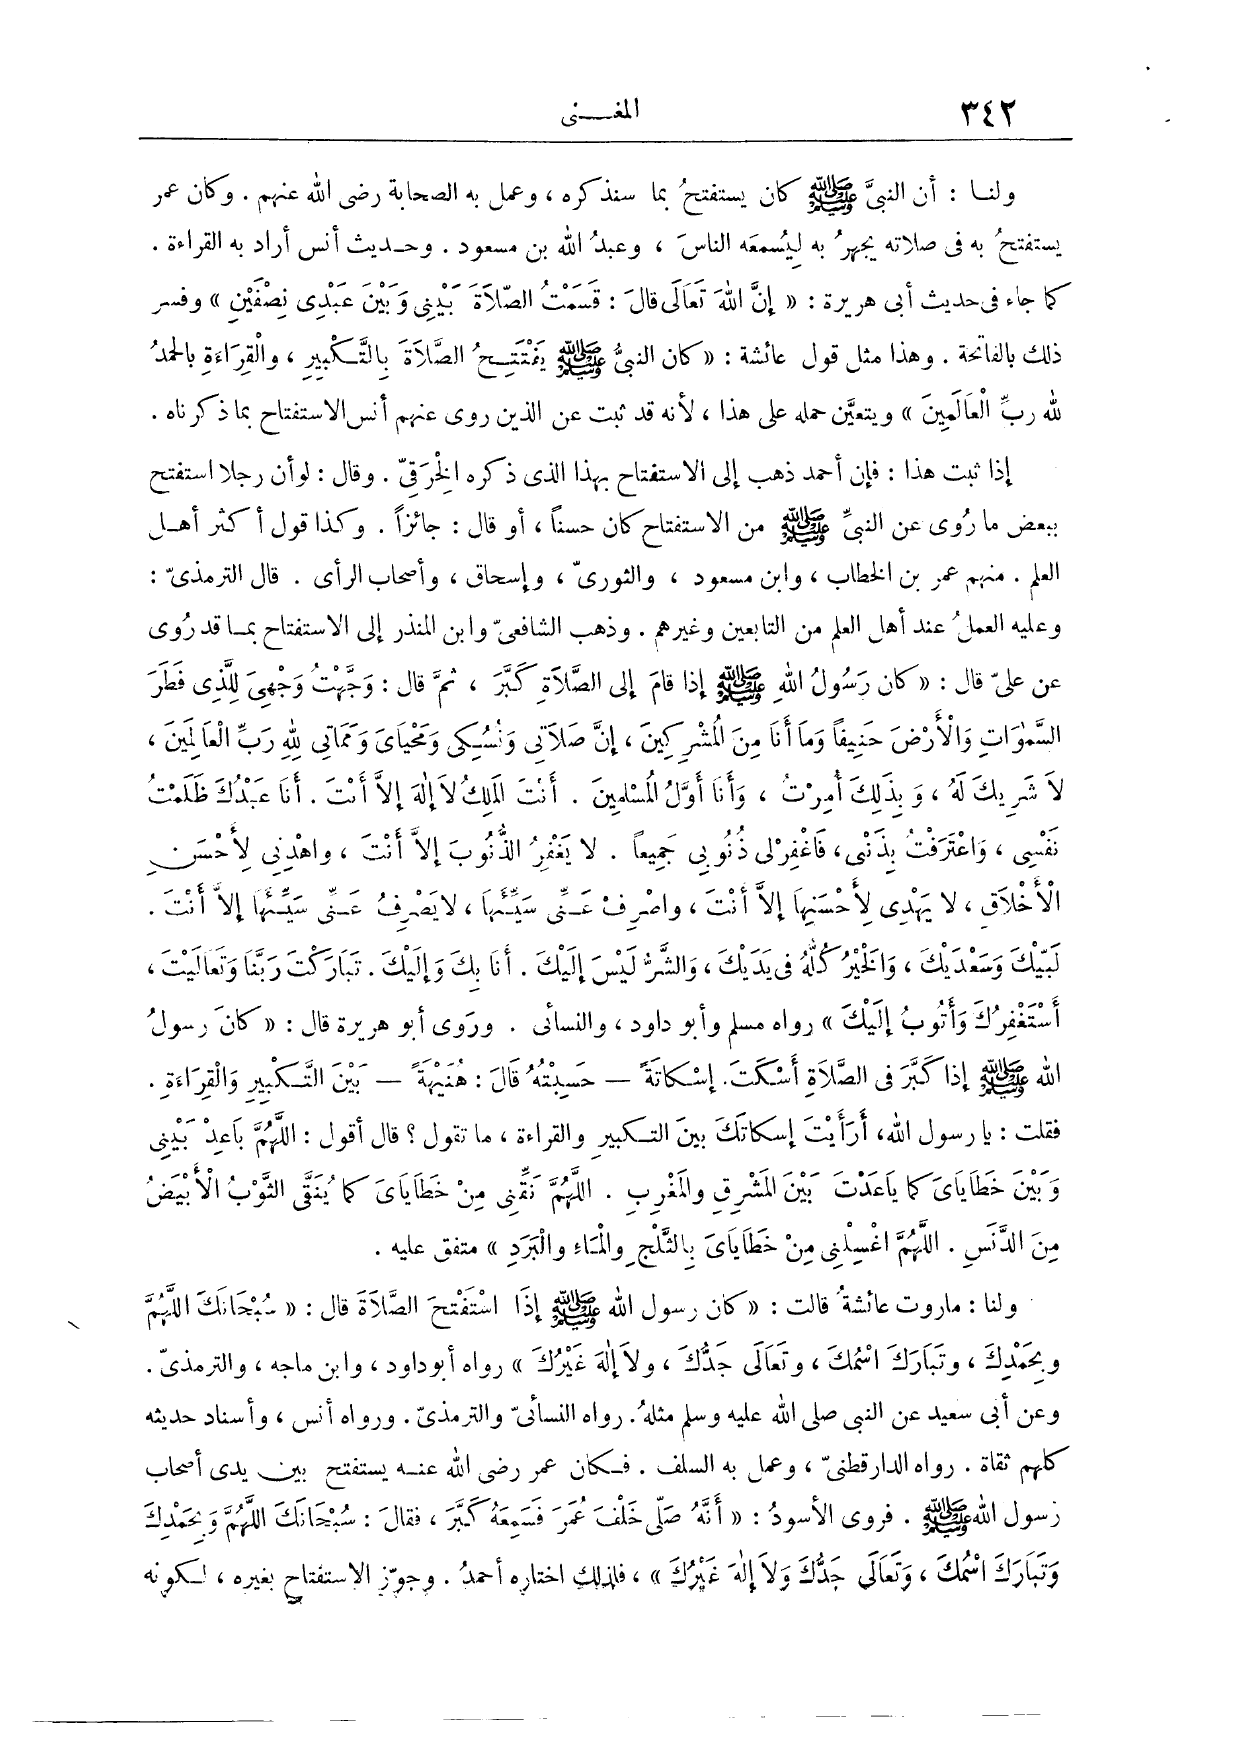 ٣٤٢
المغـــنى
ولنـا : أن النبىَّ ﷺ كان يستفتحُ بما سنذكره ، وعمل به الصحابة رضى الله عنهم . وكان عمر
يستفتحُ به فى صلاته يجهرُ به لِيُسمعَه الناسَ ، وعبدُ الله بن مسعود . وحـديث أنس أراد به القراءة .
كما جاء فى حديث أبى هريرة : « إِنَّ اللهَ تَعَالَى قالَ : قَسَمْتُ الصّلاَةَ بَيْنِى وَبَيْنَ عَبْدِى نِصْفَيْنِ » وفسر
ذلك بالفاتحة . وهذا مثل قول عائشة : « كان النبىُّ ﷺ يَفْتَتِـحُ الصَّلاَةَ بِالتَّـكْبِيرِ ، والْقِرَاءَةِ بالحمدُ
لله ربِّ الْعَالَمِينَ » ويتعيَّن حمله على هذا ، لأنه قد ثبت عن الذين روى عنهم أنس الاستفتاح بما ذكرناه .
إذا ثبت هذا : فإن أحمد ذهب إلى الاستفتاح بهذا الذى ذكره الْخِرَقِىّ . وقال : لو أن رجلا استفتح
ببعض ما رُوى عن النبىِّ ﷺ من الاستفتاح كان حسناً ، أو قال : جائزاً . وكذا قول أكثر أهـل
العلم . منهم عمر بن الخطاب ، وابن مسعود ، والثورىّ ، وإسحاق ، وأصحاب الرأى . قال الترمذىّ :
وعليه العملُ عند أهل العلم من التابعين وغيرهم . وذهب الشافعىّ وابن المنذر إلى الاستفتاح بمـا قد رُوى
عن علىّ قال : « كان رَسُولُ اللهِ ﷺ إذا قامَ إلى الصَّلاَةِ كَبَّرَ ، ثمَّ قال : وَجَّهْتُ وَجْهِىَ لِلَّذِى فَطَرَ
السَّمٰوَاتِ وَالْأَرْضَ حَنِيفاً وَمَا أَنَا مِنَ الْمُشْرِكِينَ ، إنَّ صَلاَتِى وَنُسُكِى وَمَحْيَاىَ وَمَمَاتِى لِلهِ رَبِّ الْعاَلِمَينَ ،
لاَ شَرِيكَ لَهُ ، وَبِذَلِكَ أُمِرْتُ ، وَأَنَا أَوَّلُ الْمُسْلِمينَ . أَنْتَ الْمَلِكُ لاَ إِلٰهَ إِلاَّ أَنتَ . أَنَا عَبْدُكَ ظَلَمْتُ
نَفْسِى ، وَاعْتَرَفْتُ بِذَنْبِى، فَاغْفِرْ لِى ذُنُوبِى جَمِيعاً . لا يَغْفِرُ الذُّنُوبَ إلاَّ أَنْتَ ، واهْدِنِى لِأَحْسَنِ
الْأَخْلاَقِ ، لا يَهْدِى لِأَحْسَنِهَا إلاَّ أَنْتَ ، واصْرِفْ عَـنِّى سَيِّئَهَا ، لا يَصْرِفُ عَـنِّى سَيِّئَهَا إلاَّ أَنْتَ .
لَبَّيْكَ وَسَعْدَيْكَ ، وَالخَيْرُ كُلُّهُ فى يَدَيْكَ ، وَالشَّرُّ لَيْسَ إِلَيْكَ . أَنَا بِكَ وَإِلَيْكَ . تَبَارَكْتَ رَبَّنَا وَتَعَالَيْتَ ،
أَسْتَغْفِرُكَ وَأَتُوبُ إلَيْكَ » رواه مسلم وأبو داود ، والنسائى . ورَوى أبو هريرة قال : « كانَ رسولُ
الله ﷺ إذَا كَبَّرَ فى الصَّلاَةِ أَسْكَتَ. إِسْكَاتَةً — حَسِبْتُهُ قَالَ : هُنَيْهَةً — بَيْنَ التَّـكْبِيرِ وَالْقِرَاءَةِ .
فقلت : يا رسول الله، أَرَأَيْتَ إسكاتَكَ بينَ التـكبير والقراءة ، ما تقول ؟ قال أقول : اللَّهُمَّ بَاعِدْ بَيْنِى
وَبَيْنَ خَطَايَاىَ كما بَاعَدْتَ بَيْنَ المَشْرِقِ والمَغْرِبِ . اللَّهُمَّ نَقِّنِى مِنْ خَطَايَاىَ كما يُنَقَّى الثَّوْبُ الْأَبْيَضُ
مِنَ الدَّنَسِ . اللَّهُمَّ اغْسِلْنِى مِنْ خَطَايَاىَ بِالثَّلْجِ والْمَاءِ والْبَرَدِ » متفق عليه .
ولنا : ماروت عائشةُ قالت : « كان رسول الله ﷺ إذَا اسْتَفْتَحَ الصَّلاَةَ قال : « سُبْحَانَكَ اللَّهُمَّ
وبِحَمْدِكَ ، وتَبَارَكَ اسْمُكَ ، وتَعَالَى جَدُّكَ ، ولاَ إِلٰهَ غَيْرُكَ » رواه أبو داود ، وابن ماجه ، والترمذىّ .
وعن أبى سعيد عن النبى صلى الله عليه وسلم مثلهُ. رواه النسائىّ والترمذىّ . ورواه أنس ، وأسناد حديثه
كلهم ثقاة . رواه الدارقطنىّ ، وعمل به السلف . فـكان عمر رضى الله عنـه يستفتح بين يدى أصحاب
رسول الله ﷺ . فروى الأسودُ : « أَنَّهُ صَلَّى خَلْفَ عُمَرَ فَسَمِعَهُ كَبَّرَ ، فقالَ : سُبْحَانَكَ اللَّهُمَّ وَبِحَمْدِكَ
وَتَبَارَكَ اسْمُكَ ، وَتَعَالَى جَدُّكَ وَلاَ إِلٰهَ غَيْرُكَ » ، فلذلك اختاره أحمدُ . وجوّز الاستفتاح بغيره ، لـكونه